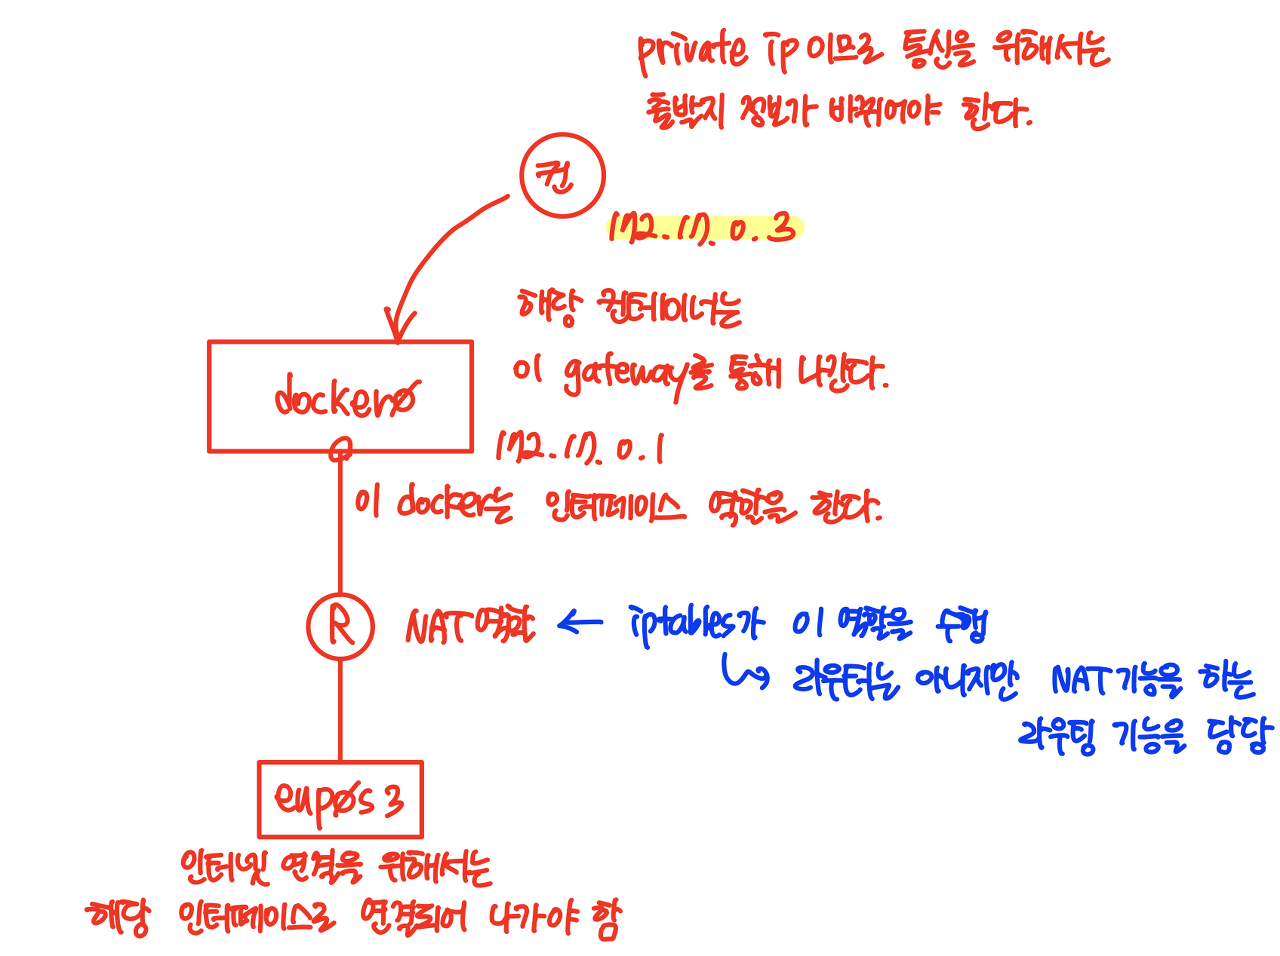 private ip 이므로 통신을 위해서는
출발지 정보가 바뀌어야 한다.
컨
172.17.0.3
해당 컨테이너는
이 gateway를 통해 나간다.
docker0
172.17.0.1
이 docker는 인터페이스 역할을 한다.
R
NAT역할 ← iptables가 이 역할을 수행
라우터는 아니지만 NAT기능을 하는
라우팅 기능을 담당
enp0s3
인터넷 연결을 위해서는
해당 인터페이스로 연결되어 나가야 함